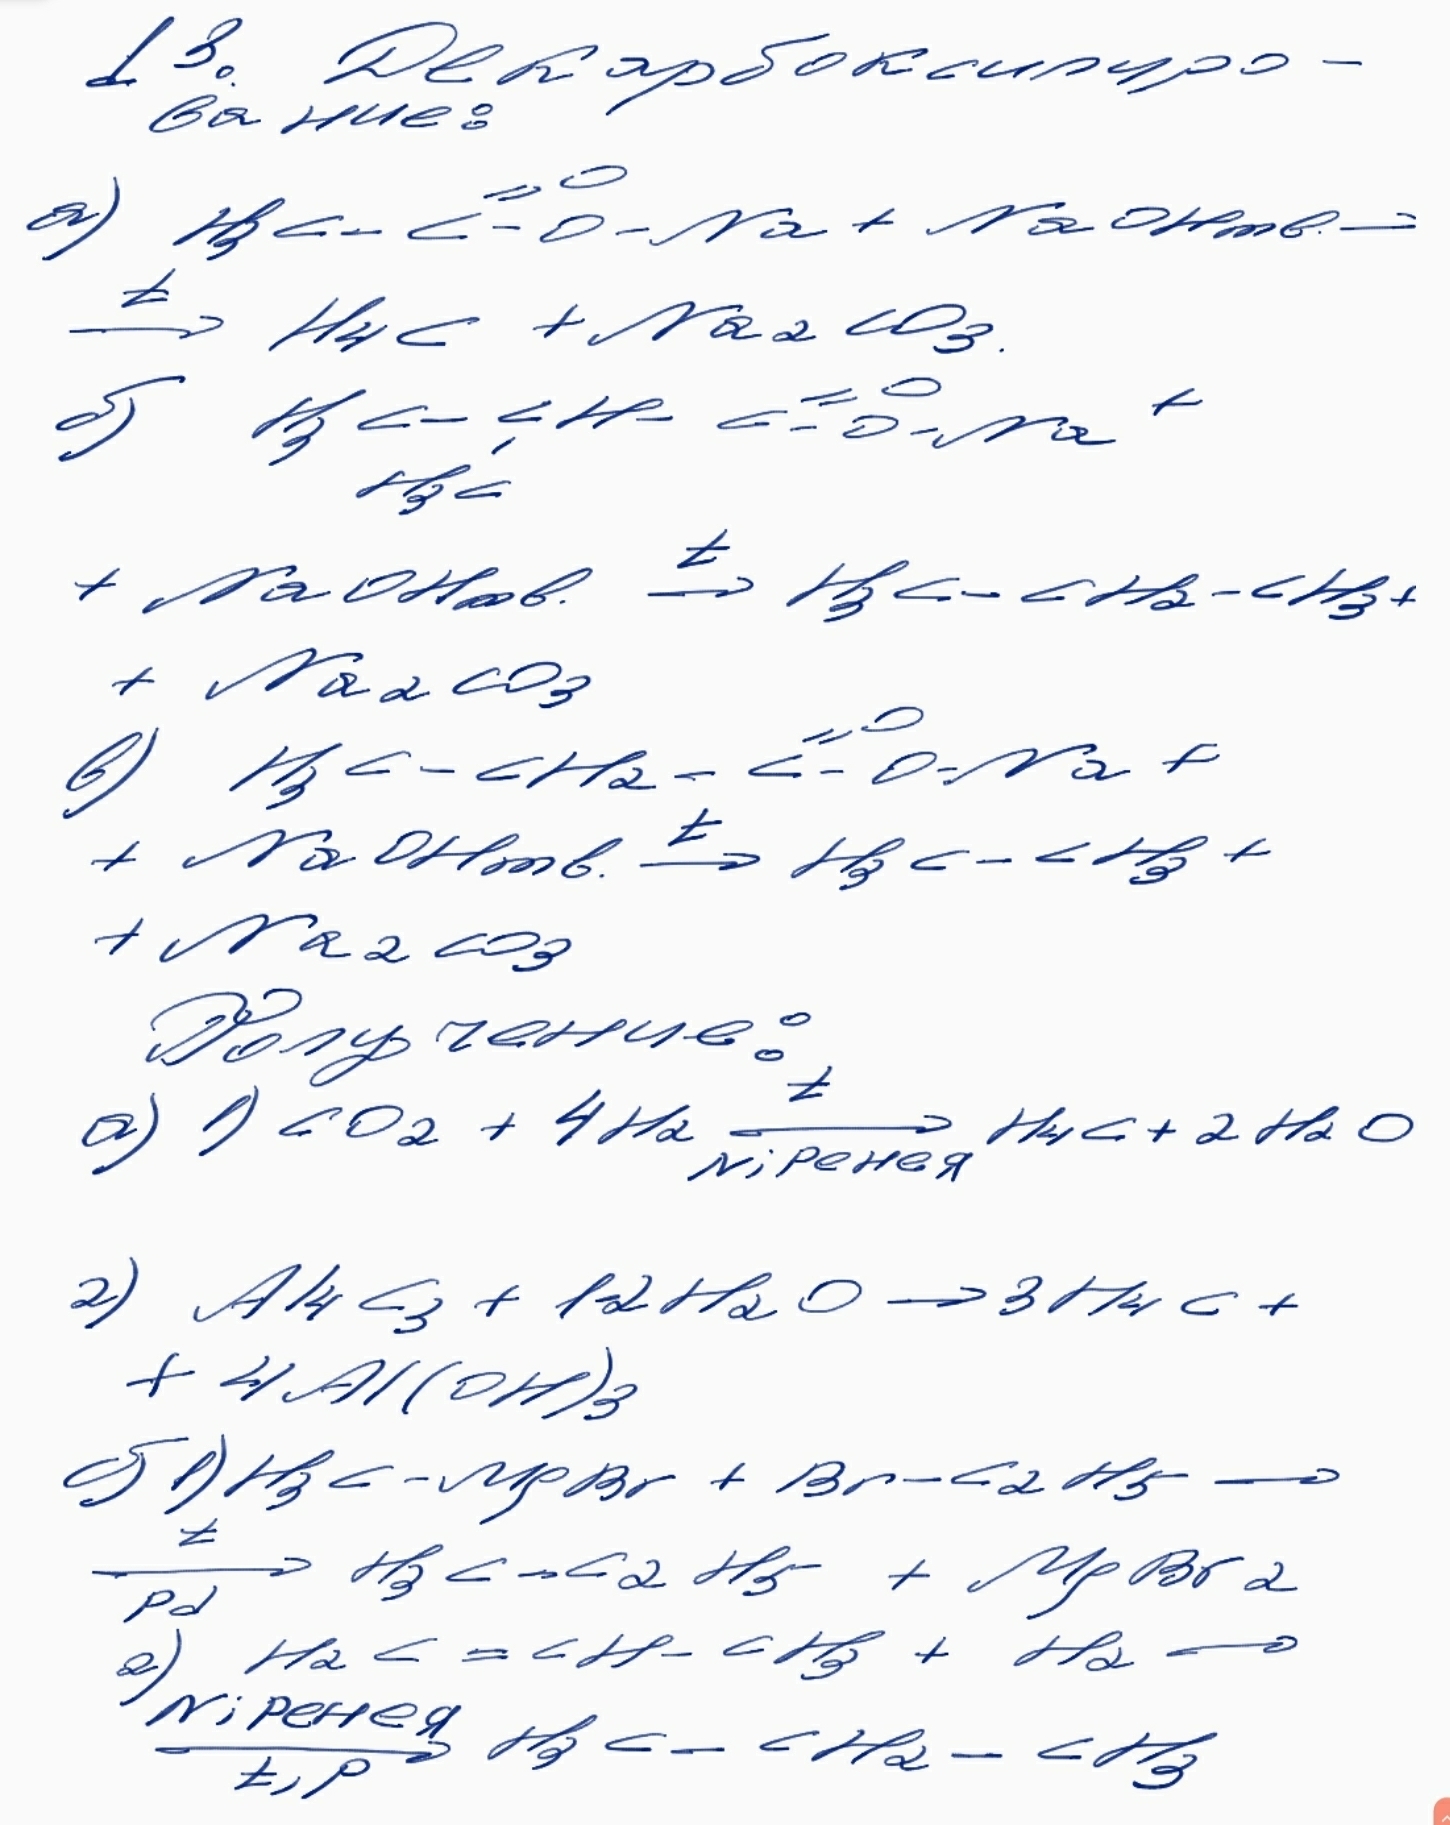 13. Декарбоксилиро-
вание:
а) H3C-C=O-O-Na + NaOHтв. →
t→ H4C + Na2CO3.
б) H3C-CH-C=O-O-Na +
H3C
+ NaOHтв. t→ H3C-CH2-CH3+
+ Na2CO3
в) H3C-CH2-C=O-O-Na +
+ NaOHтв. t→ H3C-CH3 +
+ Na2CO3
Получение:
а) 1) CO2 + 4H2 t→ Ni Ренея H4C + 2H2O
2) Al4C3 + 12H2O → 3H4C +
+ 4Al(OH)3
б) 1) H3C-MgBr + Br-C2H5 →
t→ Pd H3C-C2H5 + MgBr2
2) H2C=CH-CH3 + H2 →
Ni Ренея→ t, p H3C-CH2-CH3